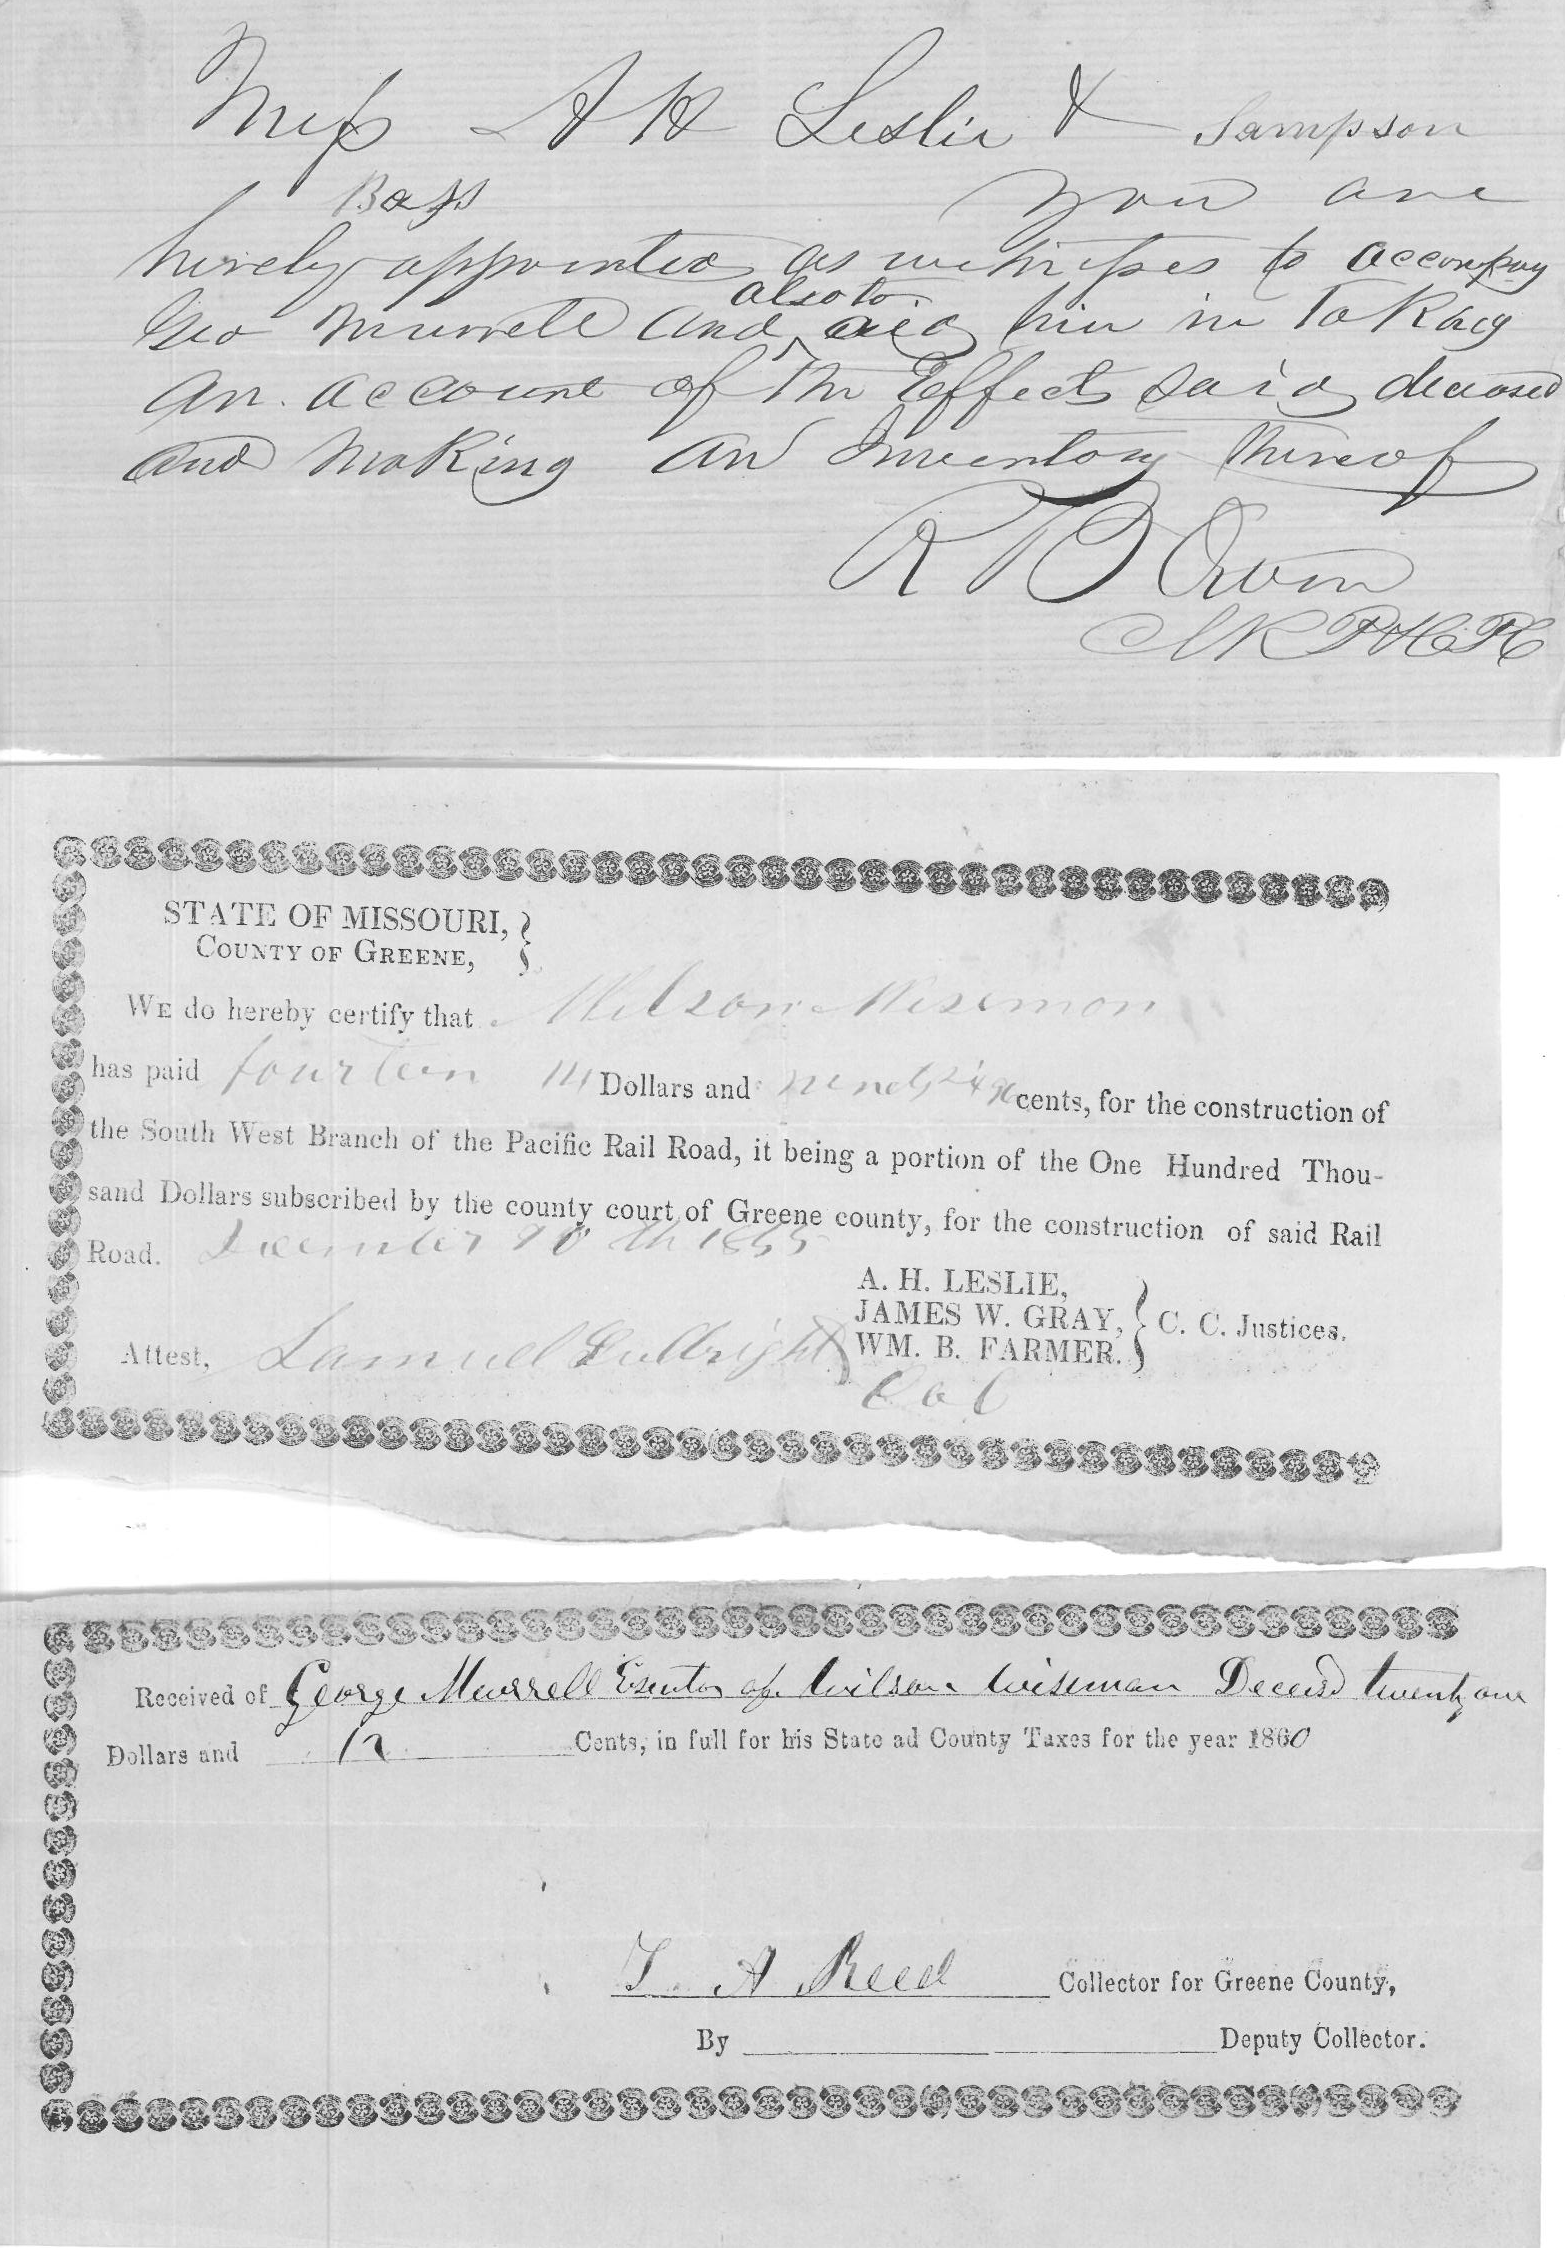 Mess A H Leslie & Sampson
Bass You are
hereby appointed as witnesses to accompany
Geo Murrell and also to aid him in taking
an account of the Effects said deceased
and making an Inventory thereof
R B Owen
STATE OF MISSOURI,
COUNTY OF GREENE,
WE do hereby certify that Wilson Wisemon
has paid fourteen 14 Dollars and ninety six 96 cents, for the construction of
the South West Branch of the Pacific Rail Road, it being a portion of the One Hundred Thou-
sand Dollars subscribed by the county court of Greene county, for the construction of said Rail
Road. December th 1855
A. H. LESLIE,
JAMES W. GRAY, } C. C. Justices.
WM. B. FARMER.
Attest, Samuel Fulbright
Col
Received of George Murrell Exeutor of Wilson Wiseman Deceisd twenty one
Dollars and 12 Cents, in full for his State ad County Taxes for the year 1860
T A Reed Collector for Greene County,
By Deputy Collector.